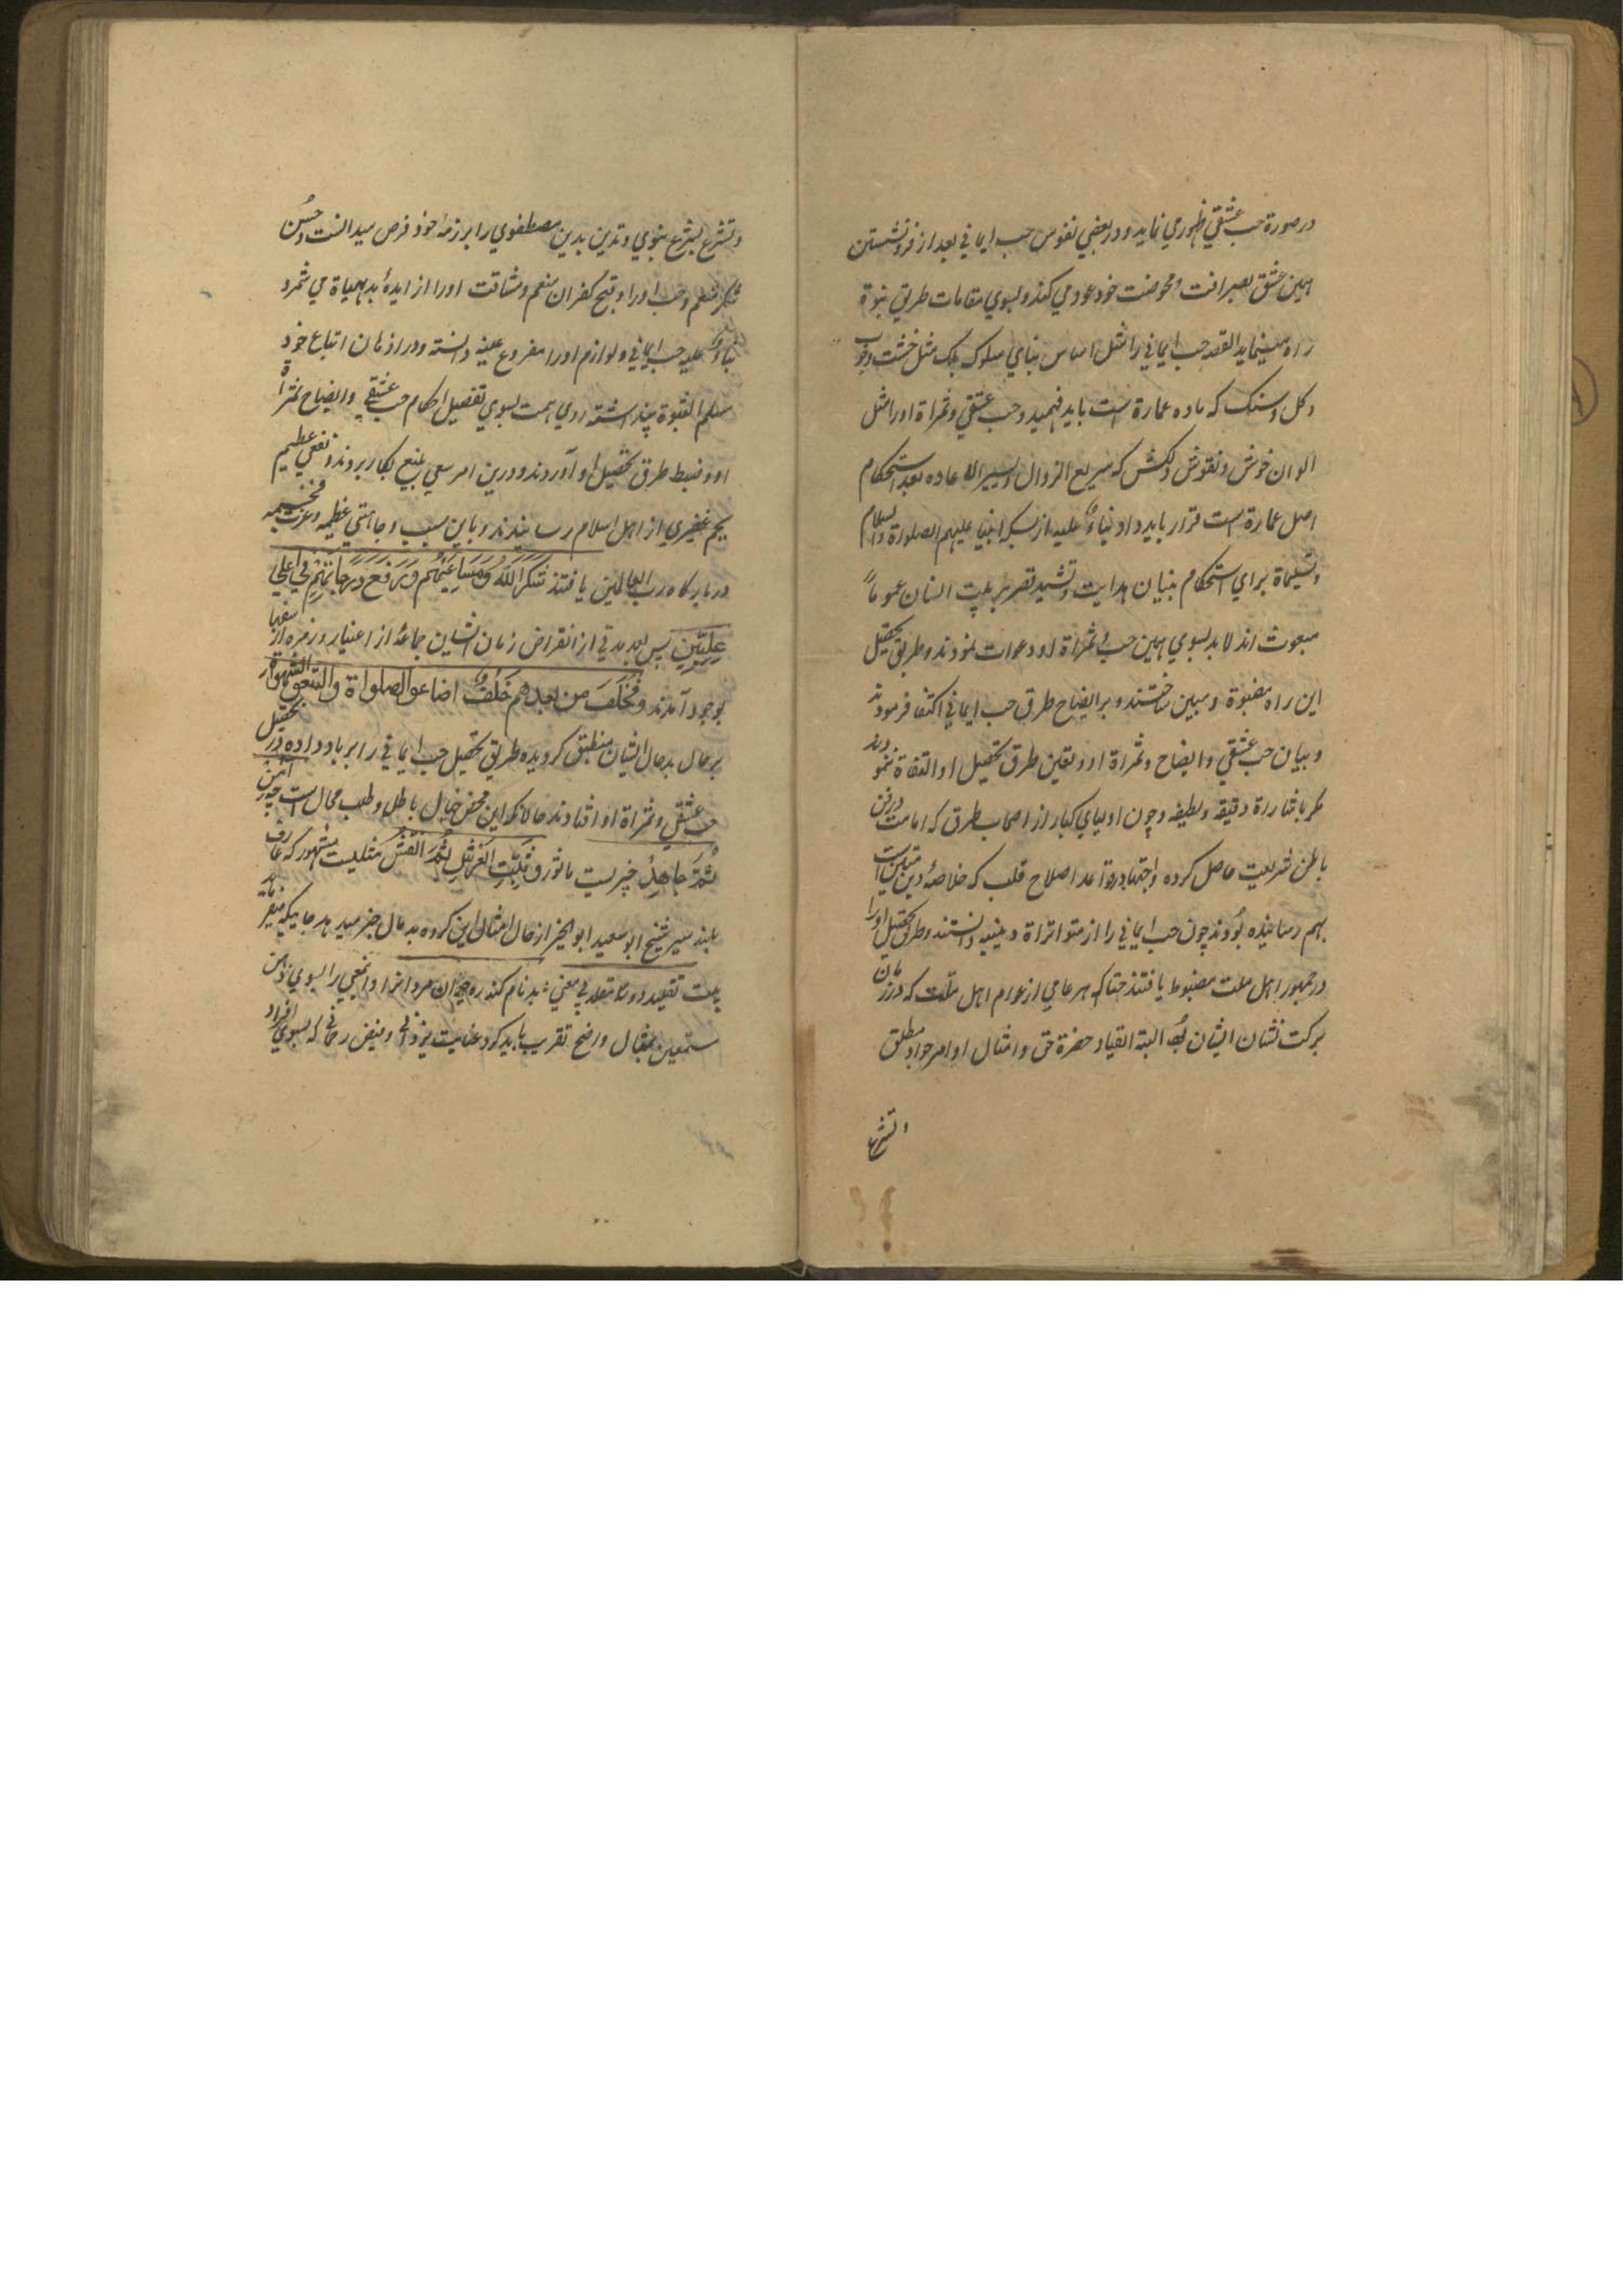 در صورة حب عشقي ظهور مي نمايد و در بعضي نفوس حب ايماني بعد از فرو نشستن
همين عشق بصرافت و محوضت خود عود مي كند و بسوي مقامات طريق نبوة
راه مينمايد القصه حب ايماني را مثل اساس بناي سلوك بلك مثل خشت و چوب
و كل و سنك كه ماده عمارة است بايد فهميد و حب عشقي و ثمراة او را مثل
الوان خوش و نقوش دلكش كه سريع الزوال و يسير الاعاده بعد استحكام
اصل عمارة است قرار بايد داد بناءً عليه از بسكه انبيا عليهم الصلوة والسلام
و تسليماة براي استحكام بنيان هدايت و تشييد قصر تربيت انسان عموماً
مبعوث اند لابد بسوي همين حب و ثمراة او دعوات نمودند و طريق تحصيل
اين راه مضبوط و مبين ساختند و بر ايضاح طرق حب ايماني اكتفا فرمودند
و بيان حب عشقي و ايضاح و ثمراة او و تعين طرق تحصيل او التفاة ننمودند
مكر باشارة دقيقه و لطيفه و چون اولياي كبار از اصحاب طرق كه امامت در فن
باطن شريعت حاصل كرده و اجتهاد در قواعد اصلاح قلب كه خلاصهٔ دين متين است
بهم رسانيده بودند چون حب ايماني را از متواتراة دينيه دانستند و طرق تحصيل او را
در جمهور اهل ملت مضبوط يافتند حتا كه هر عامي از عوام اهل ملت كه در زمان
بركت نشان ايشان بُود البته انقياد حضرة حق و امتثال اوامر جواد مطلق
و تشرع
و تشرع بشرع نبوي و تدين بدين مصطفوي را بر ذمهٔ خود فرض ميدانست و حُسن
شكر منعم و حب او را و قبح كفران منعم و مشاقت او را از ايدهٔ بديهياة مي شمرد
بناءً عليه حب ايماني و لوازم او را مفروع عنه دانسته و در اذهان اتباع خود
مسلم الثبوة پنداشته روي همت بسوي تفصيل احكام حب عشقي و ايضاح ثمراة
او و ضبط طرق تحصيل او آوردند و درين امر سعي بليغ بكار بردند و نفعي عظيم
بجم غفيري از اهل اسلام رسانيدند و باين سبب وجاهتي عظيمه و عزت فخيمه
در باركاه رب العالمين يافتند شَكَرَ اللّٰهُ مَسَاعِيَهُم وَ رَفَعَ دَرَجَاتِهِم في اعلي
عِلِيّين پس بعد مدتي از انقراض زمان ايشان جماعهٔ از اغنيا و زمره از سفها
بوجود آمدند و فَخَلَفَ من بعدهم خَلفٌ اضاعوا الصلواة واتبعوا الشهواة
بر حال بد مال ايشان منطبق كرديده طريق تحصيل حب ايماني را بر باد داده در تحصيل
حب عشقي و ثمراة او افتادند حالانكه اين محض خيال باطل و طلب محال است چه آمن
ثُمَّ جَاهِدْ خبريست ماثور و ثَبِّتِ العَرْشَ ثُمَّ انقُش مثليست مشهور كه عارف
بلند سير شيخ ابو سعيد ابو الخير از حال امثال اين كروه بد مال خبر ميدهد جاييكه ميفرمايد
بيت تقليد دو سه مقلد بي معني بدنام كننده ره جوان مردانرا و انمعني را بسوي ذهن
مستمعين بمثال واضح تقريب بايد كرد عنايت يزداني و فيض رحماني كه بسوي افراد